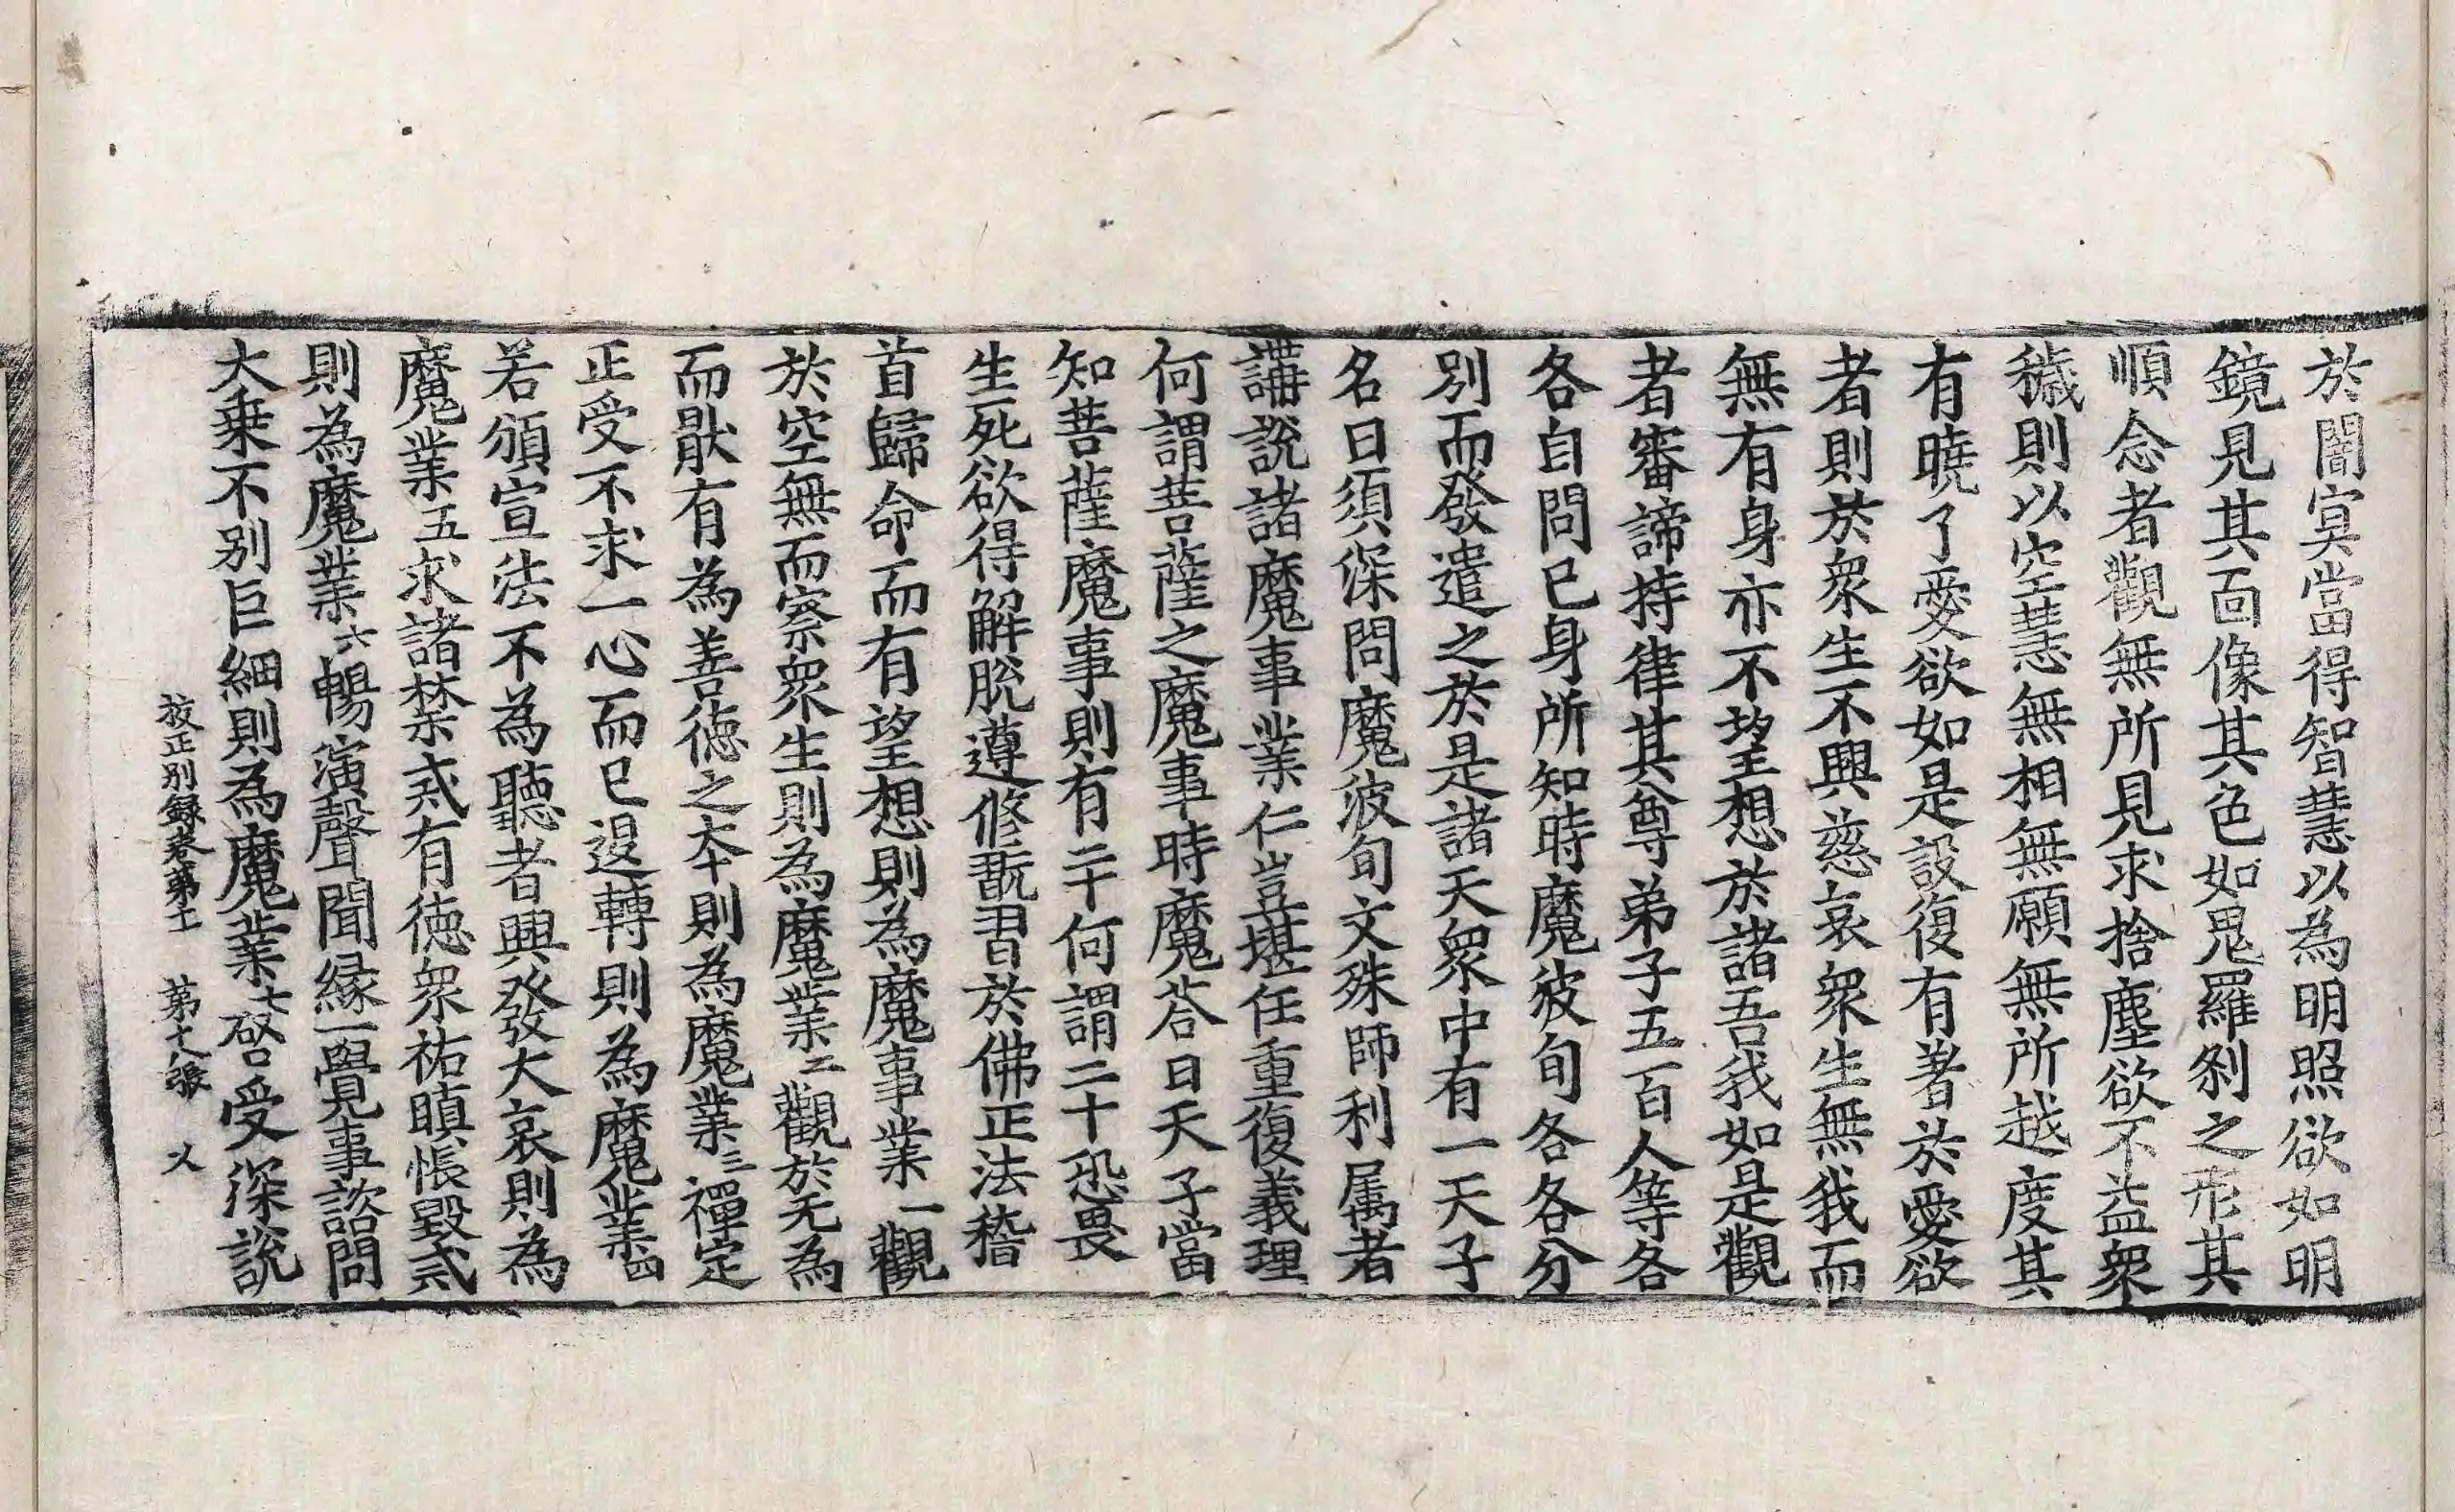 於闇㝠當得智慧以為明照欲如明
鏡見其面像其色如鬼羅剎之形其
順念者觀無所見求捨塵欲不益衆
穢則以空慧無相無願無所越度其
有曉了愛欲如是設復有著於愛欲
者則於衆生不興慈哀衆生無我而
無有身亦不望想於諸吾我如是觀
者審諦持律其尊弟子五百人等各
各自問已身所知時魔波旬各各分
別而發遣之於是諸天衆中有一天子
名曰須深問魔波旬文殊師利属者
講說諸魔事業仁豈堪任重復義理
何謂菩薩之魔事時魔荅曰天子當
知菩薩魔事則有二十何謂二十恐畏
生死欲得解脫遵修翫習於佛正法稽
首歸命而有望想則為魔事業一觀
於空無而察衆生則為魔業二觀於无為
而猒有為善徳之本則為魔業三禪定
正受不求一心而已退轉則為魔業四
若頒宣法不為聽者興發大哀則為
魔業五求諸禁戒有徳衆祐瞋恨毀戒
則為魔業六暢演聲聞縁一覺事諮問
大乗不別巨細則為魔業七啓受深說
挍正別録卷苐十 苐十八張 乂